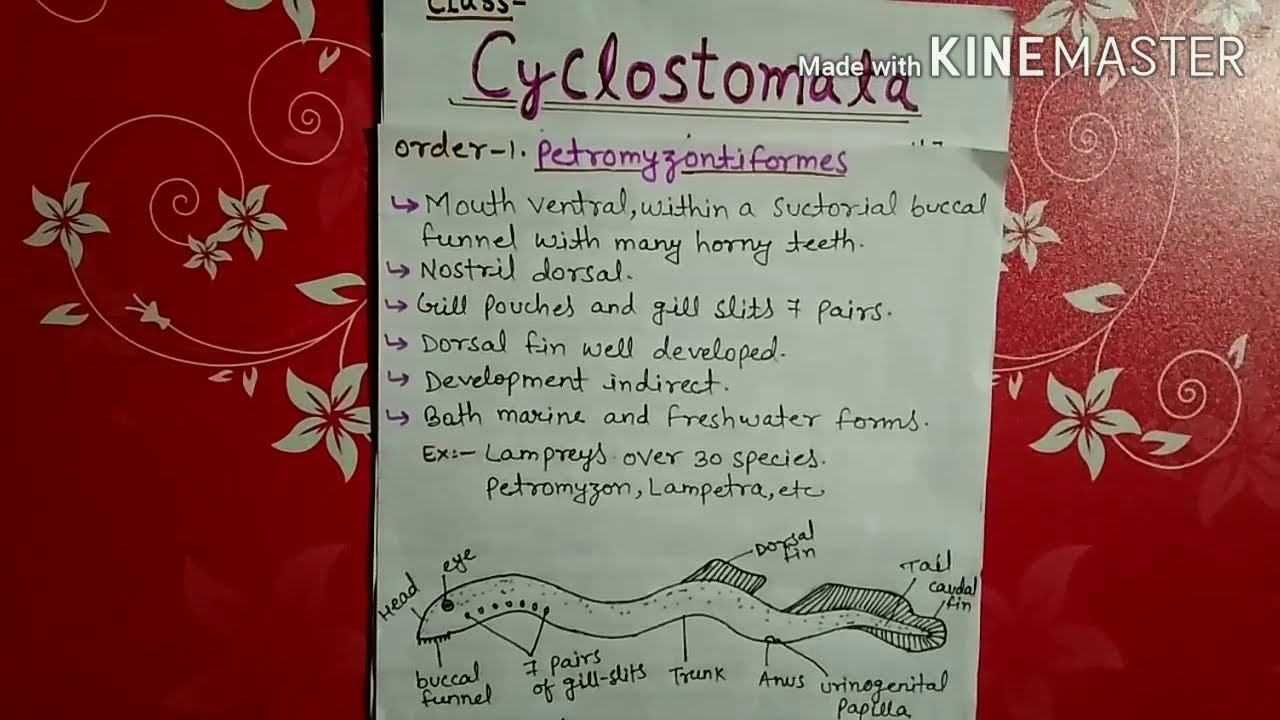 Class-
Cyclostomata
Made with KINEMASTER
order-1. Petromyzontiformes
↳ Mouth ventral, within a suctorial buccal
funnel with many horny teeth.
↳ Nostril dorsal.
↳ Gill pouches and gill slits 7 pairs.
↳ Dorsal fin well developed.
↳ Development indirect.
↳ Bath marine and freshwater forms.
Ex:- Lampreys over 30 species.
Petromyzon, Lampetra, etc
Head
eye
Dorsal
fin
Tail
caudal
fin
buccal
funnel
7 pairs
of gill-slits
Trunk
Anus
urinogenital
Papilla